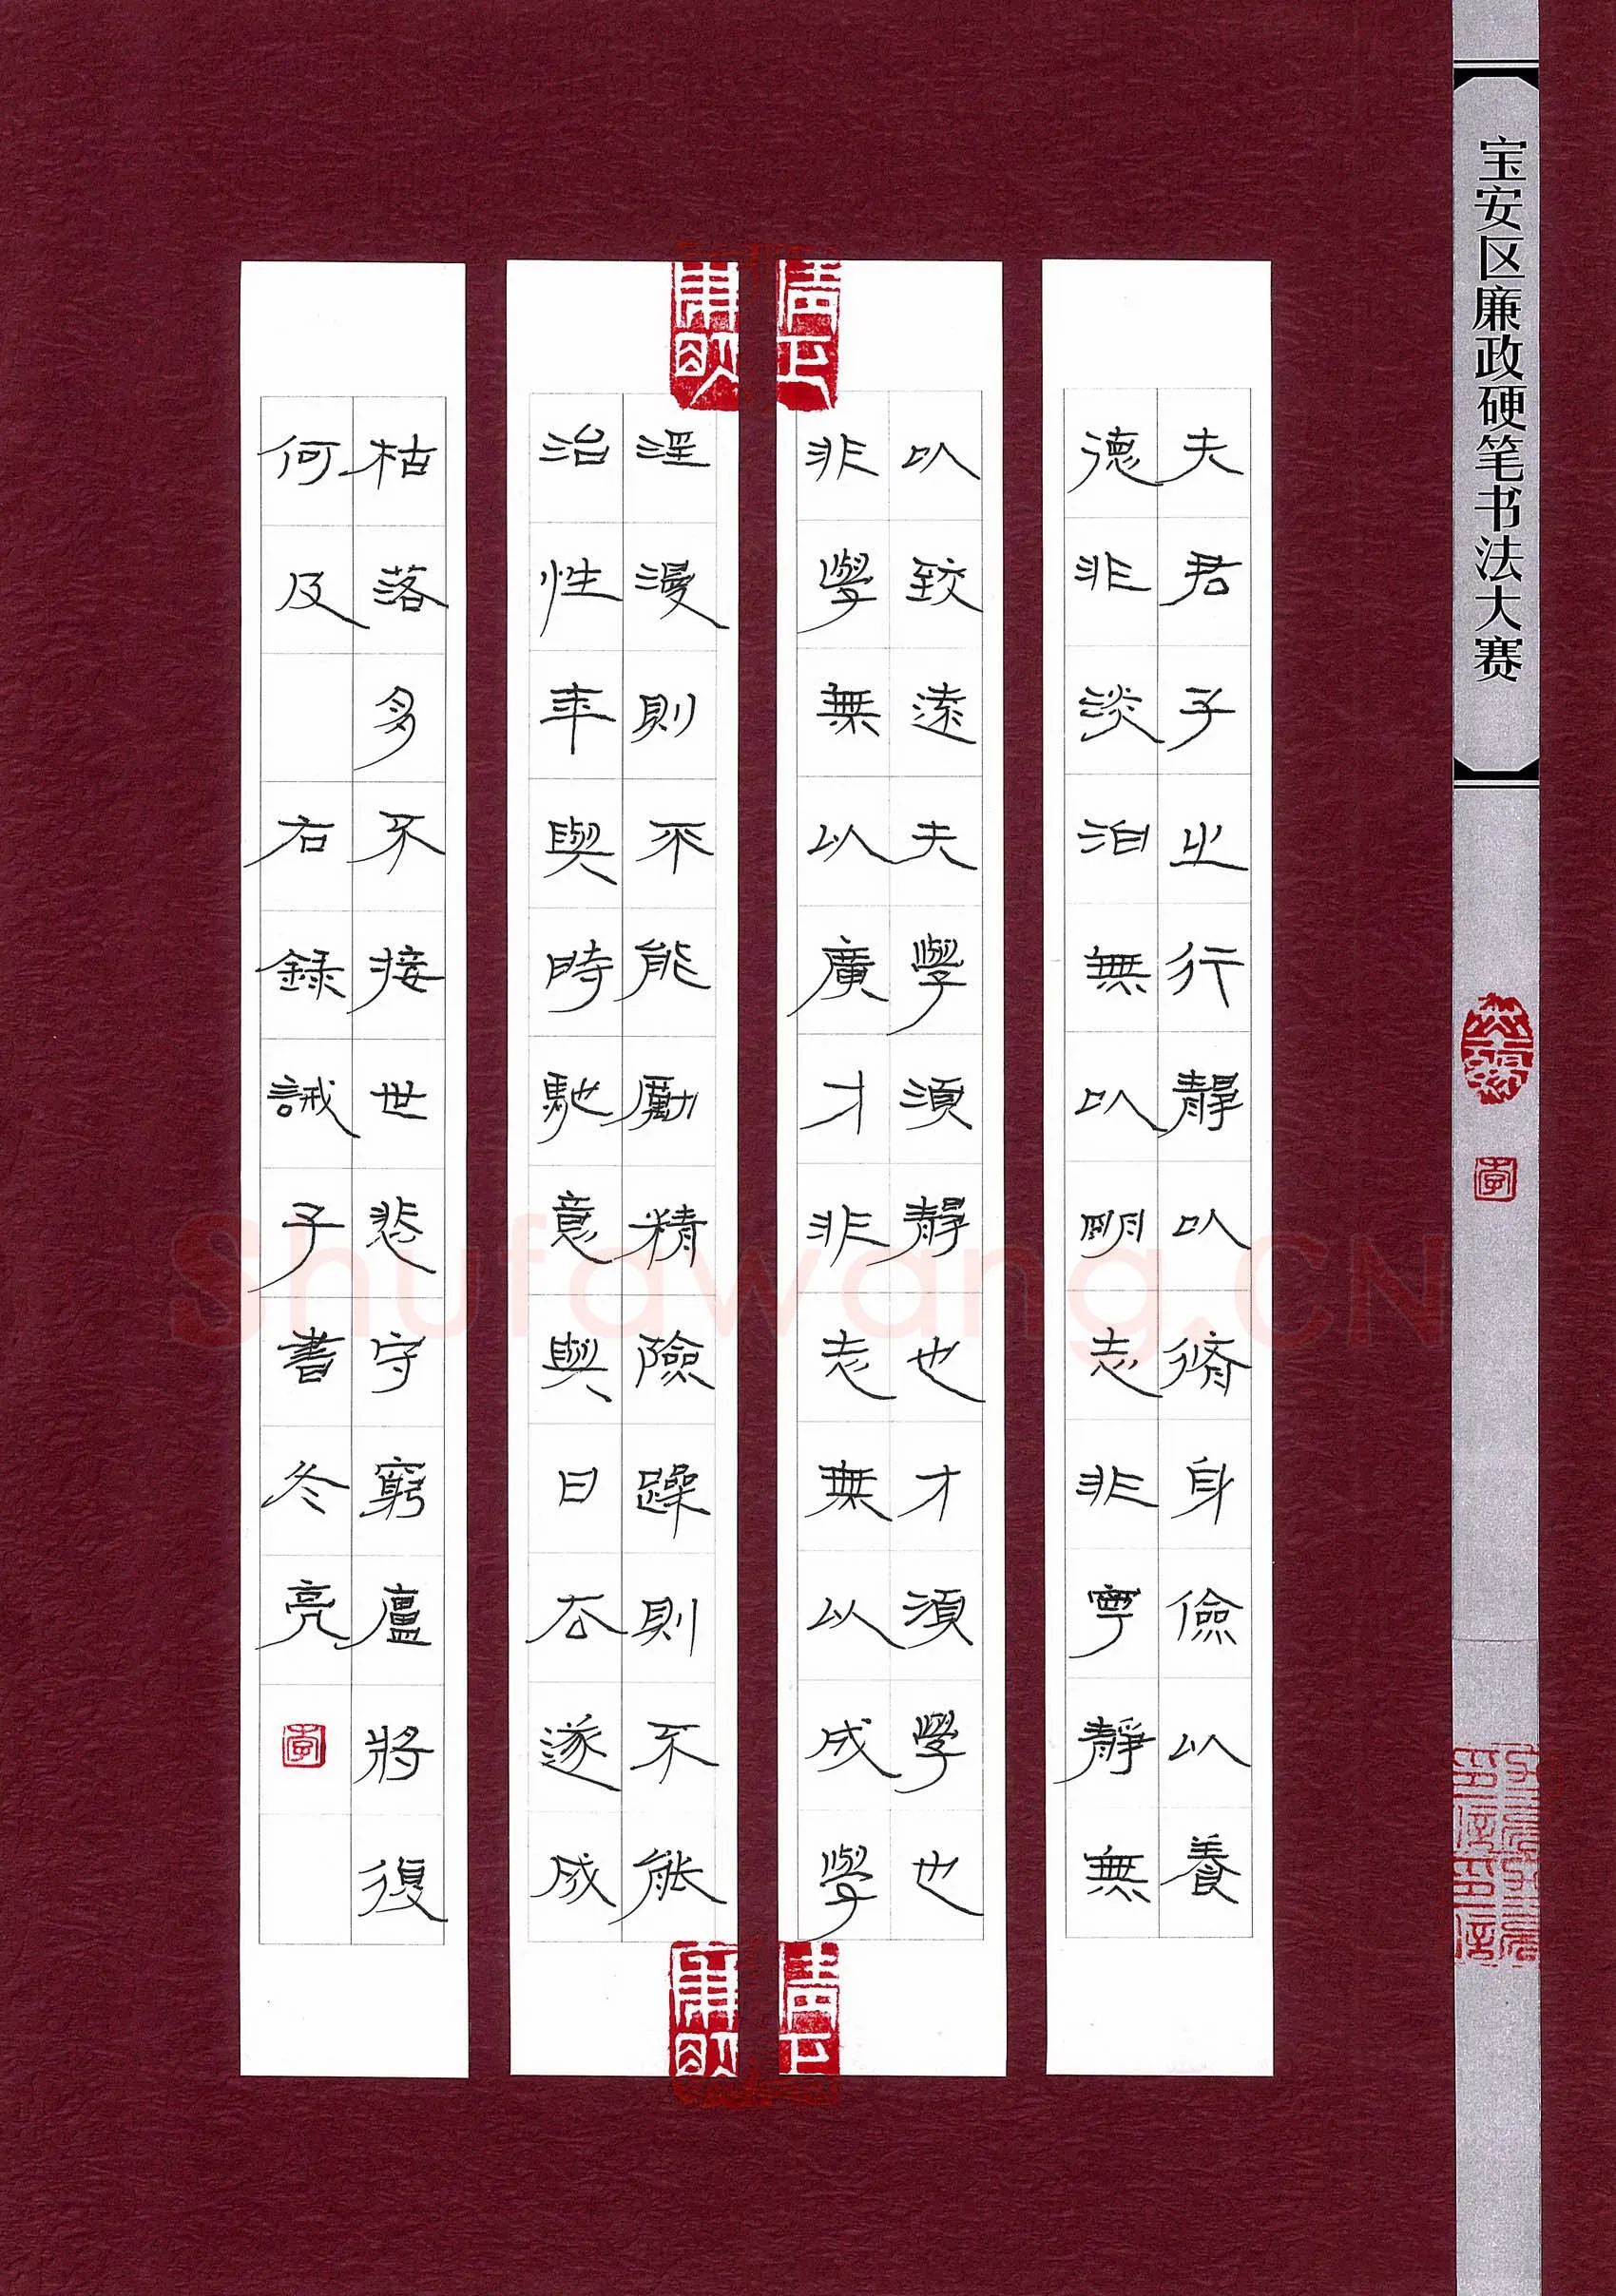 宝安区廉政硬笔书法大赛
夫君子之行静以脩身儉以養
德非淡泊無以明志非寧静無
以致遠夫學須静也才須學也
非學無以廣才非志無以成學
淫漫則不能勵精險躁則不能
治性年與時馳意與日去遂成
枯落多不接世悲守窮廬將復
何及
右錄誡子書 冬亮
Shufawang.CN